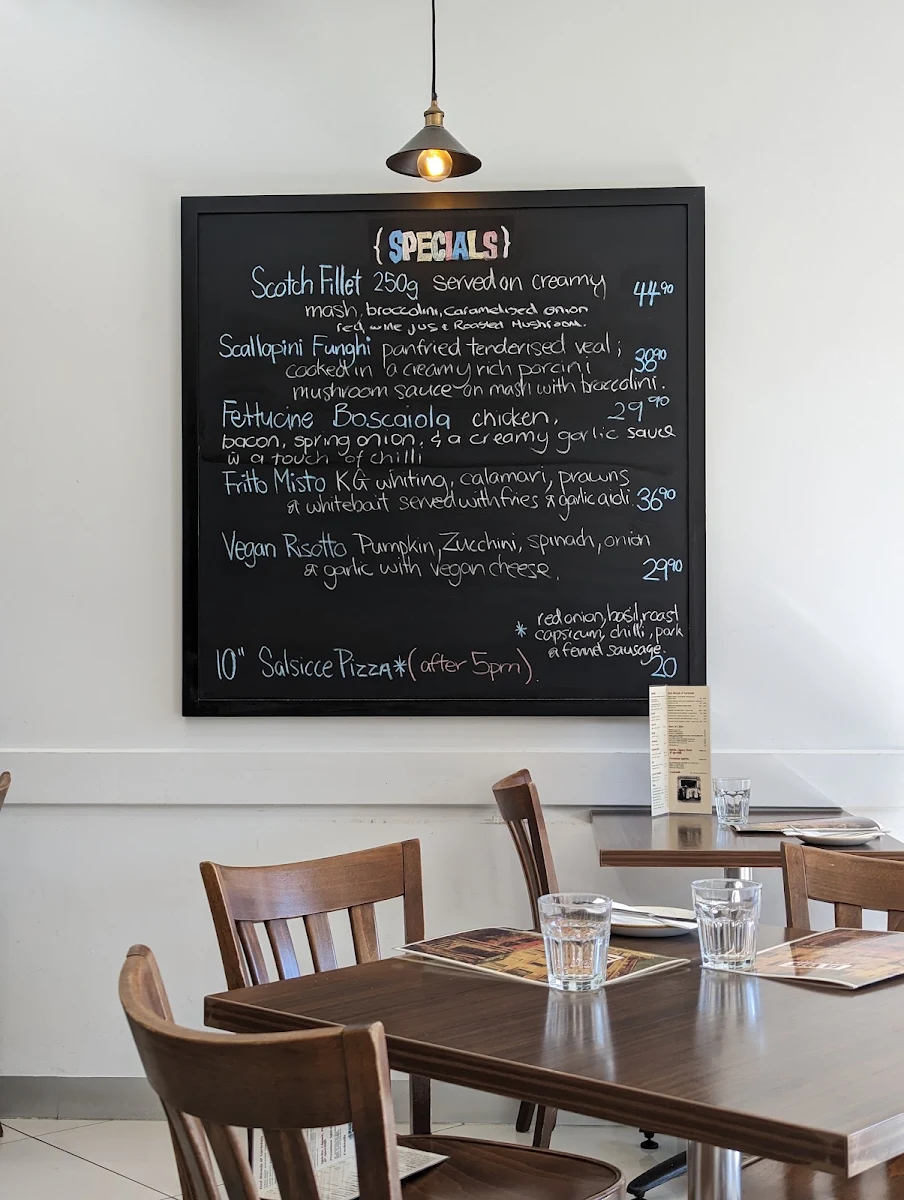 {SPECIALS}
Scotch Fillet 250g served on creamy 44.90
mash, broccolini, caramelised onion
red wine jus & Roasted Mushroom.
Scallopini Funghi panfried tenderised veal; 38.90
cooked in a creamy rich porcini
mushroom sauce on mash with broccolini.
Fettucine Boscaiola chicken, 29.90
bacon, spring onion, & a creamy garlic sauce
w a touch of chilli
Fritto Misto KG whiting, calamari, prawns
& whitebait served with fries & garlic aioli 36.90
Vegan Risotto Pumpkin, Zucchini, spinach, onion
& garlic with vegan cheese. 29.90
* red onion, basil, roast
capsicum, chilli, pork
& fennel sausage.
10" Salsicce Pizza* (after 5pm). 20